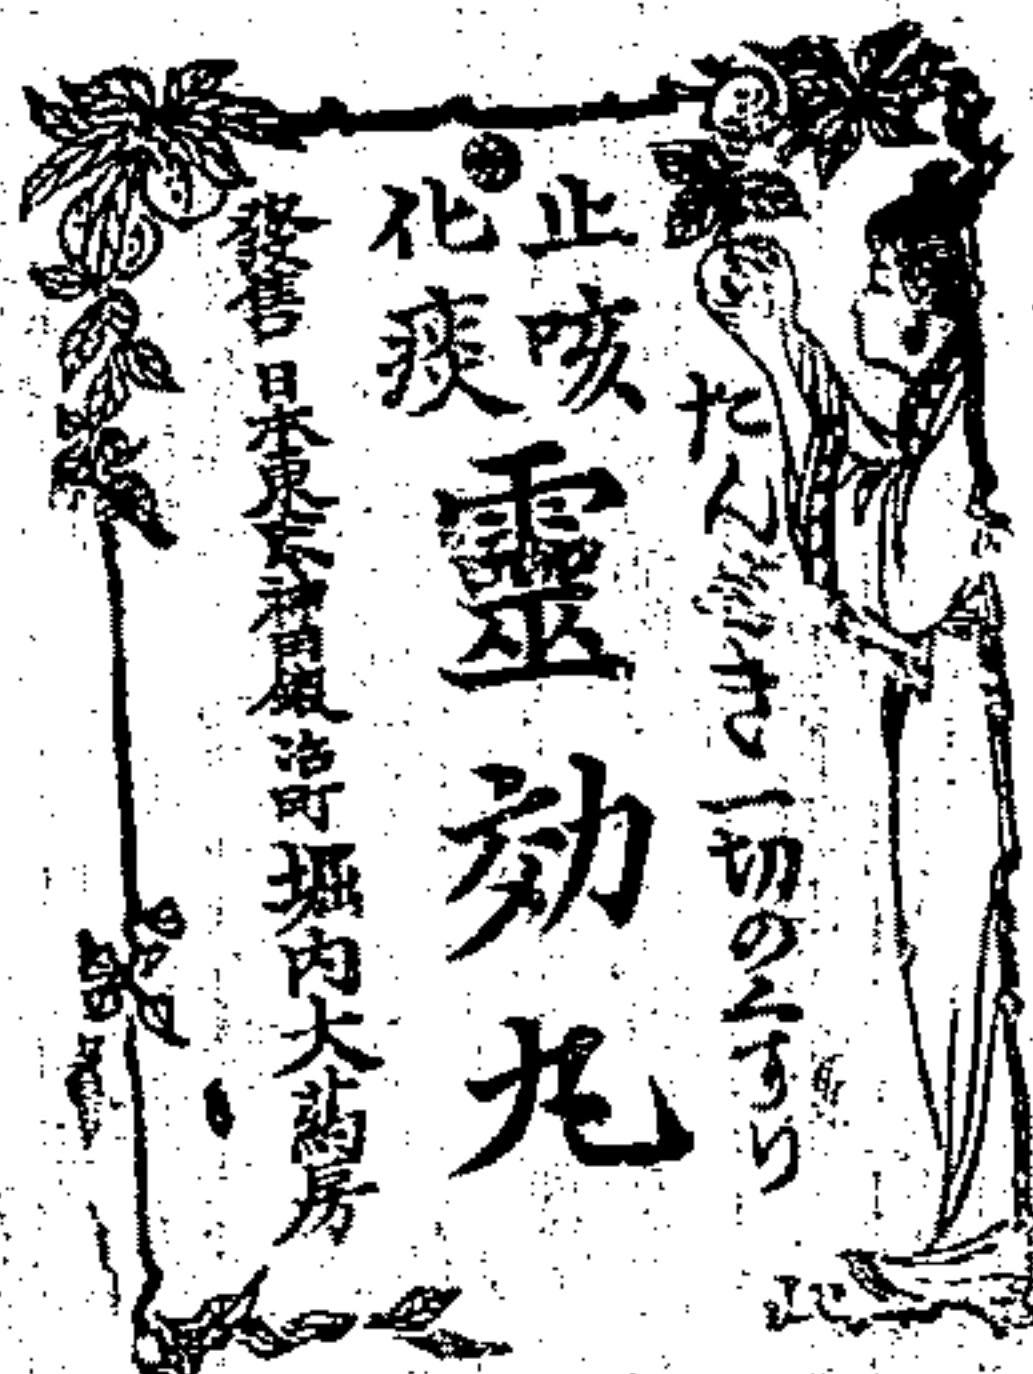 たんせき一切のくすり
止咳
化痰
靈効丸
發售 日本東京神田鍛冶町 堀内大藥房